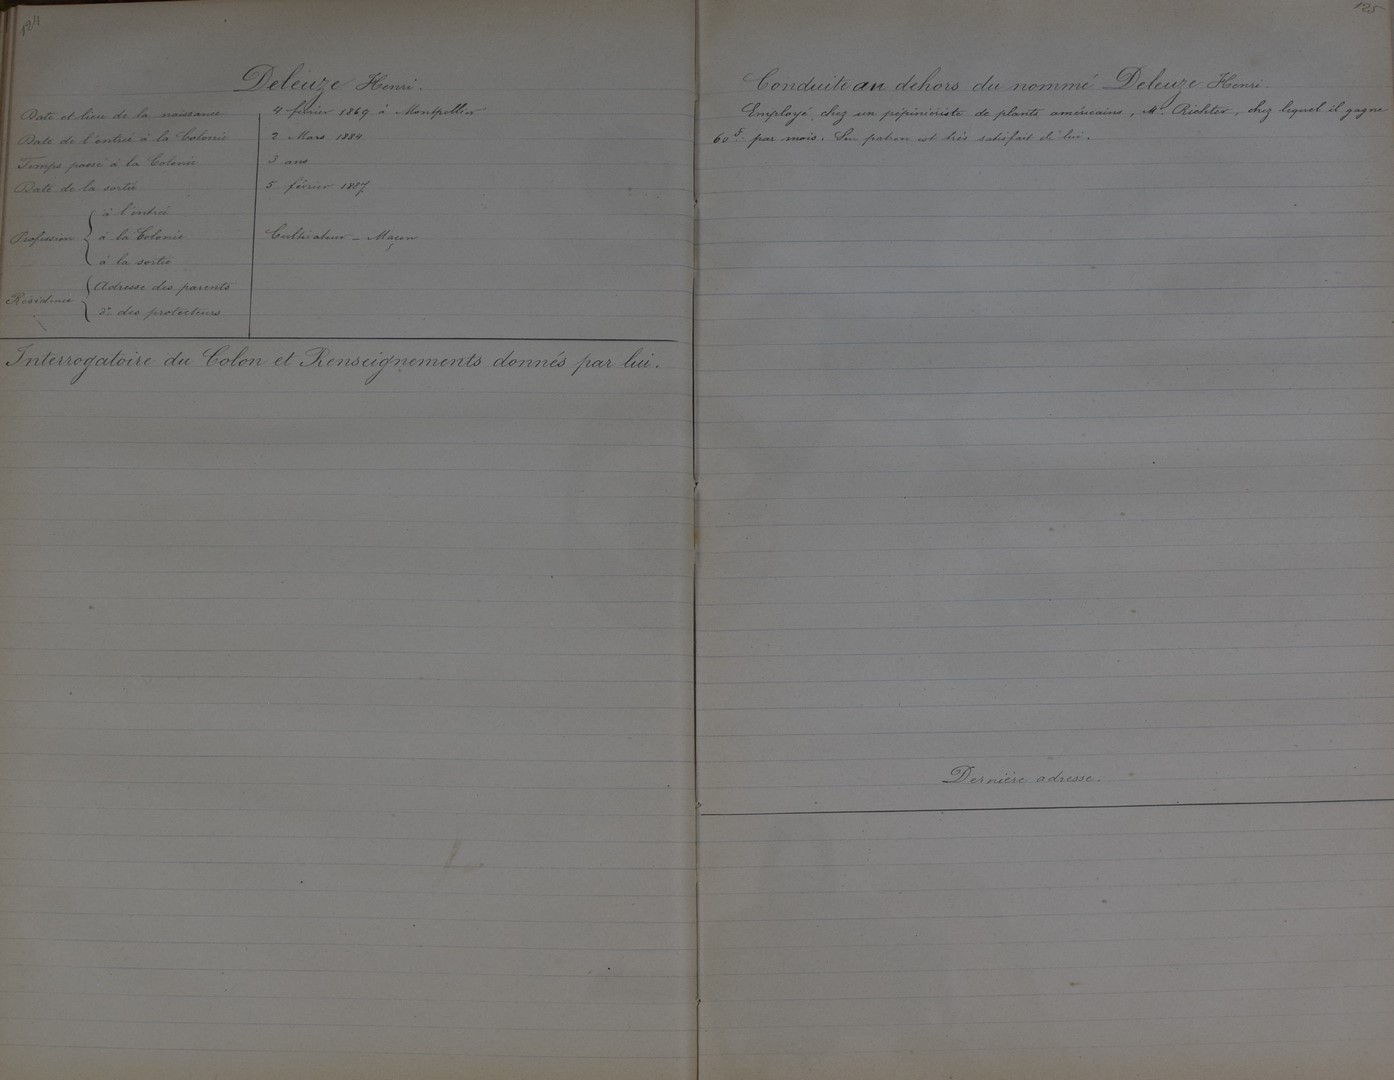 124
Deleuze Henri.
Date et lieu de la naissance 4 février 1869 à Montpellier
Date de l'entrée à la Colonie 2 Mars 1884
Temps passé à la Colonie 3 ans
Date de la sortie 5 février 1887
Profession
à l'entrée
à la Colonie Cultivateur - Maçon
à la sortie
Résidence
Adresse des parents
do des protecteurs
Interrogatoire du Colon et Renseignements donnés par lui.
125
Conduite au dehors du nommé Deleuze Henri.
Employé, chez un pépiniériste de plants américains, Mr Richter, chez lequel il gagne
60 f par mois. Son patron est très satisfait de lui.
Dernière adresse.